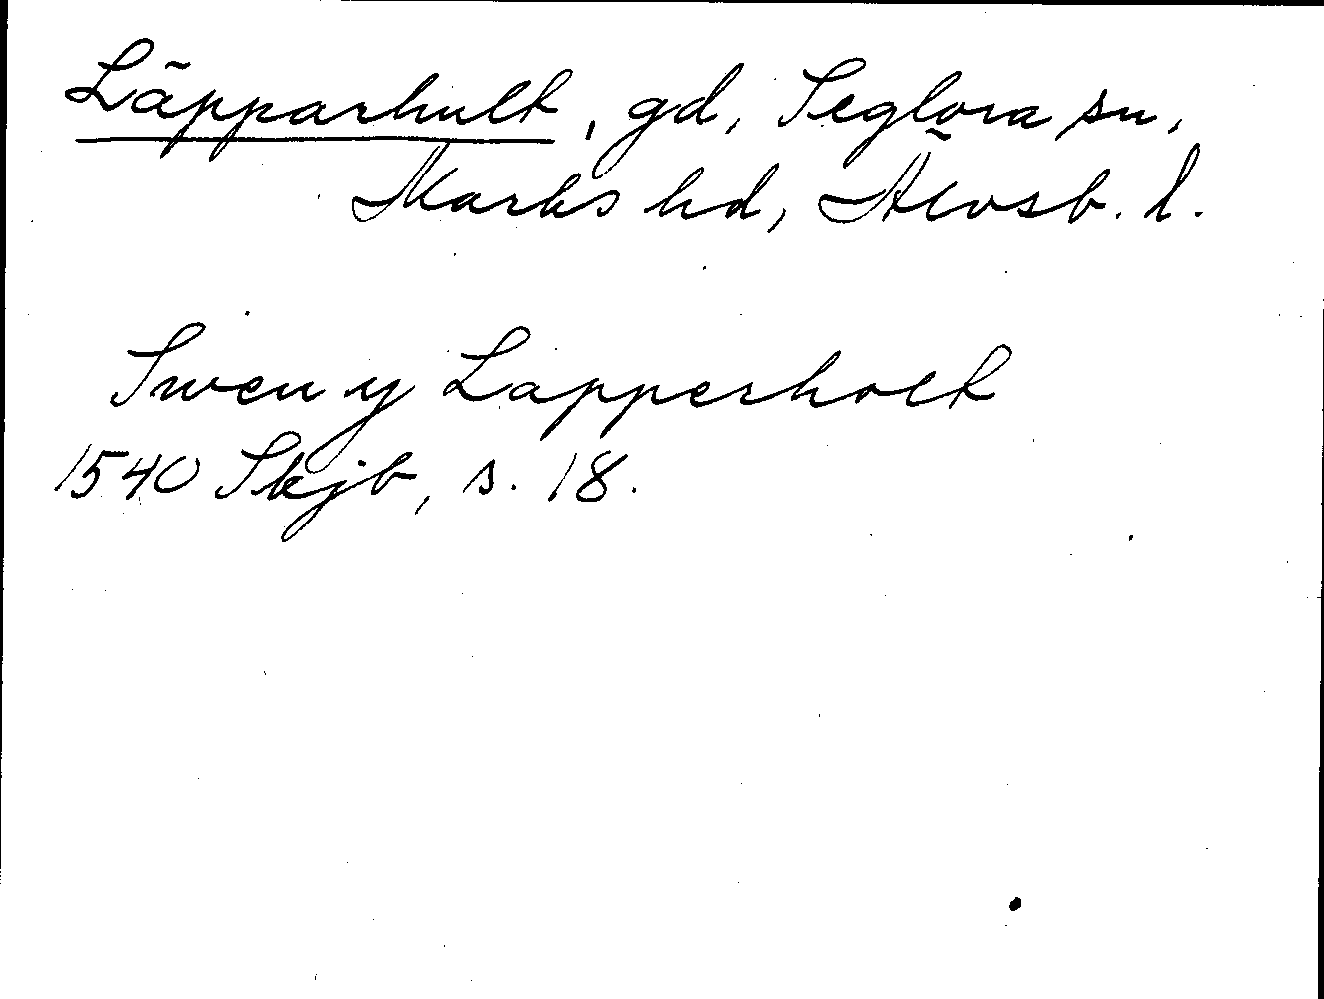 Läpparhult, gd, Seglora sn,
Marks hd, Älvsb. l.
Swen y Lapperholt
1540 Skjb, s. 18.